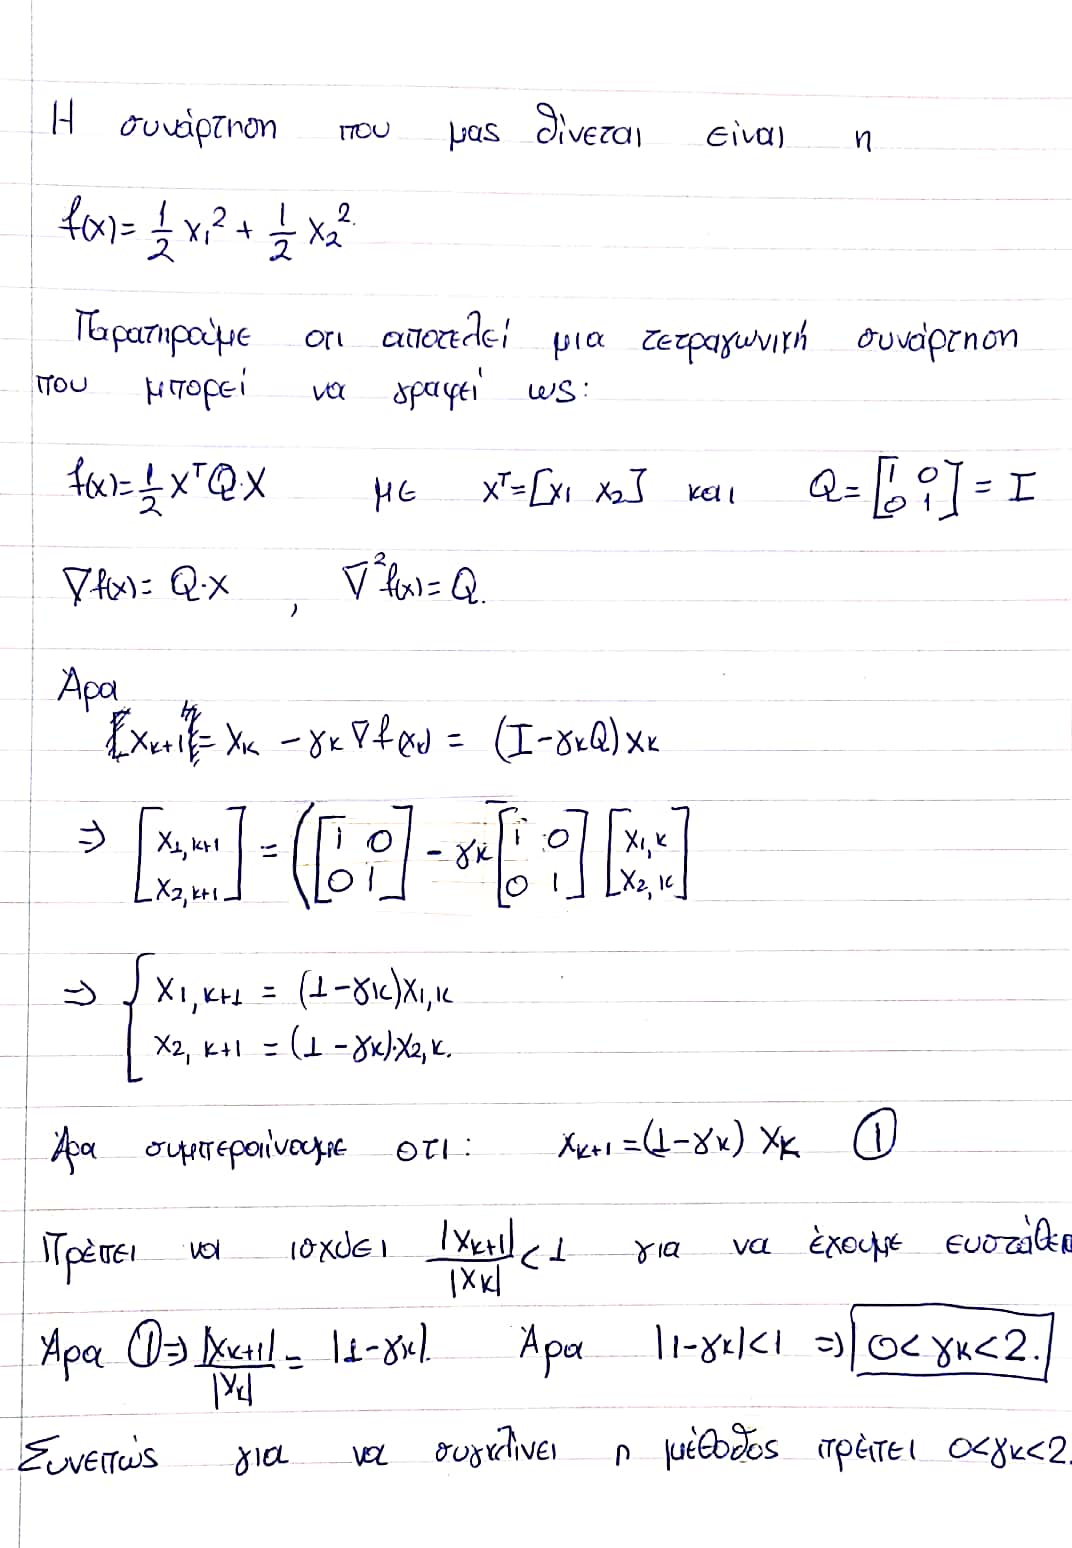 Η συνάρτηση που μας δίνεται είναι η
f(x) = 1/2 x₁² + 1/2 x₂².
Παρατηράμε οτι αποτελεί μια τετραγωνική συνάρτηση
που μπορεί να γραφεί ως:
f(x) = 1/2 xᵀQ·x με xᵀ = [x₁ x₂] και Q = [1 0; 0 1] = I
∇f(x) = Q·x , ∇²f(x) = Q.
Άρα
xₖ₊₁ = xₖ - γₖ∇f(xₖ) = (I - γₖQ)xₖ
⇒ [x₁,ₖ₊₁; x₂,ₖ₊₁] = ([1 0; 0 1] - γₖ[1 0; 0 1] [x₁,ₖ; x₂,ₖ]
⇒ { x₁,ₖ₊₁ = (1-γₖ)x₁,ₖ
x₂,ₖ₊₁ = (1-γₖ)·x₂,ₖ.
Άρα συμπεραίνουμε οτι: xₖ₊₁ = (1-γₖ) xₖ ①
Πρέπει να ισχύει |xₖ₊₁|/|xₖ| < 1 για να έχουμε
Άρα ① ⇒ |xₖ₊₁|/|xₖ| = |1-γₖ|. Άρα |1-γₖ|<1 ⇒ 0<γₖ<2.
Συνεπώς για να συγκλίνει η μέθοδος πρέπει 0<γₖ<2.